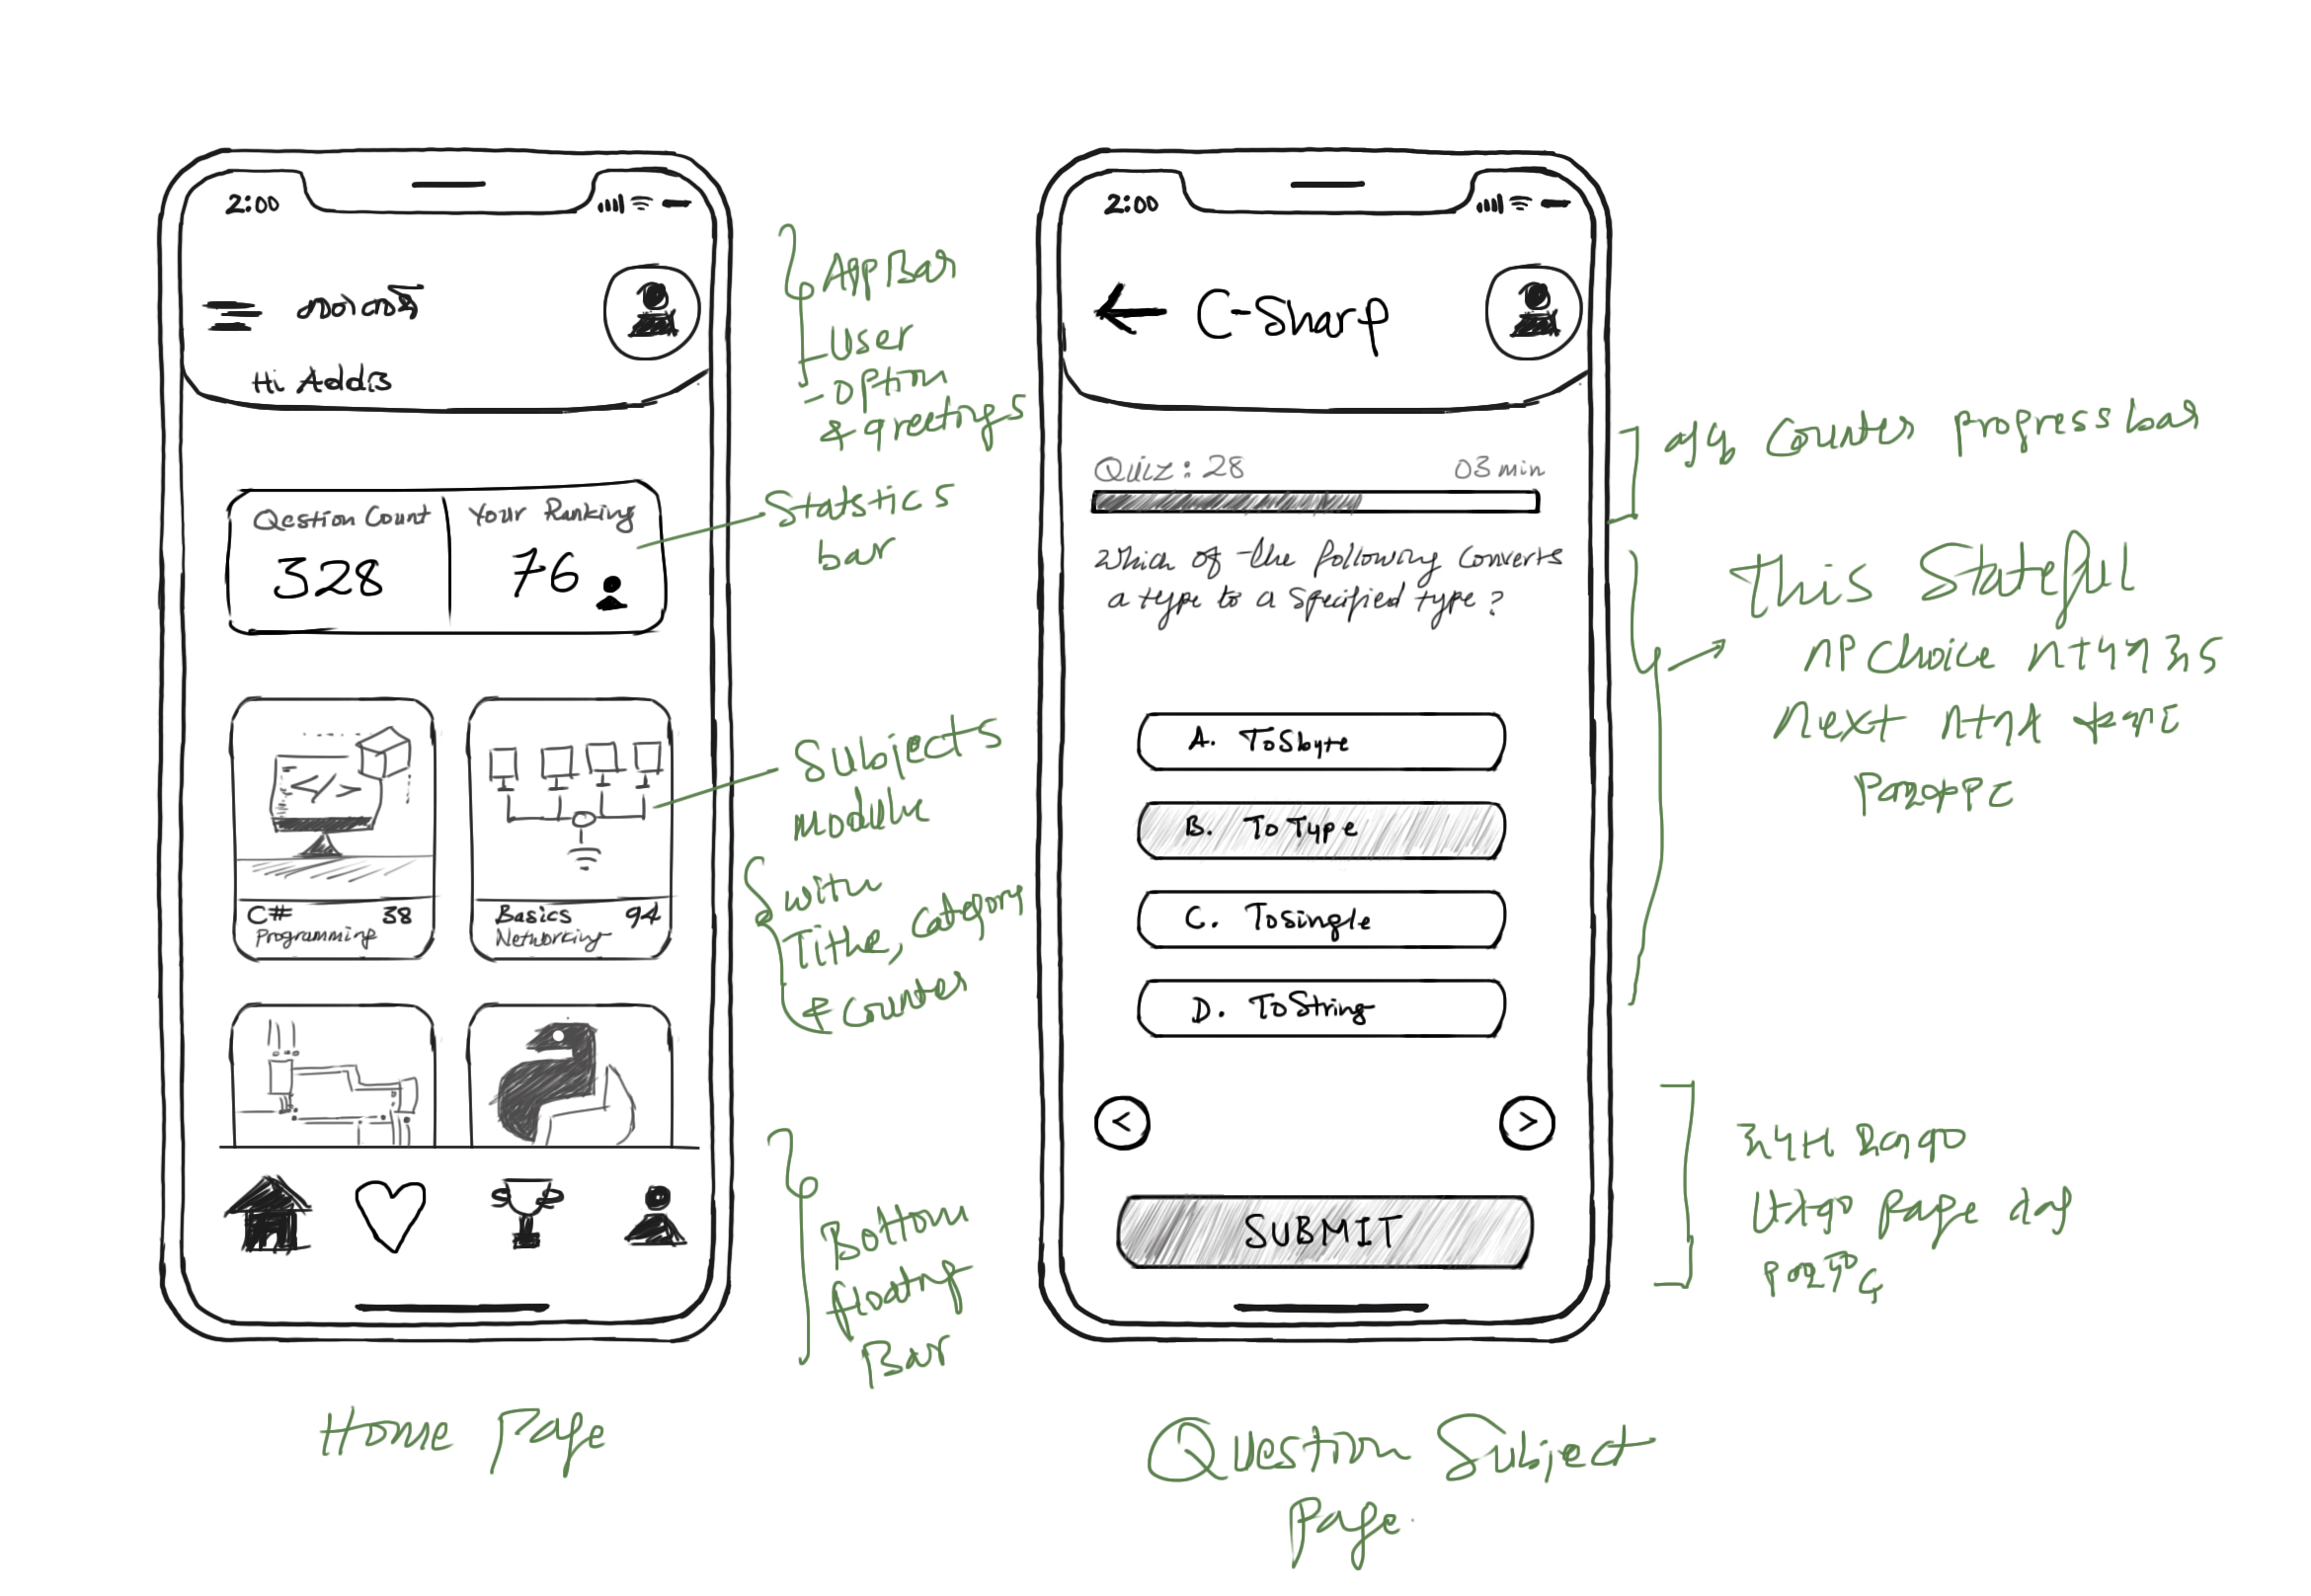 2:00
Hi Addis
Qestion Count
Your Ranking
328
76
C#
38
Programming
Basics
94
Networking
AppBar
- User
- option
& greetings
Statstics
bar
Subjects
module
with
Title, Category
& Counter
Bottom
floating
Bar
Home Page
2:00
C-Sharp
Quiz: 28
03 min
Which of the following Converts
a type to a Specified type?
A. ToSbyte
B. ToType
C. ToSingle
D. ToString
<
>
SUBMIT
Counter progress bar
This Stateful
Choice
Next
Page
Question Subject
Page.